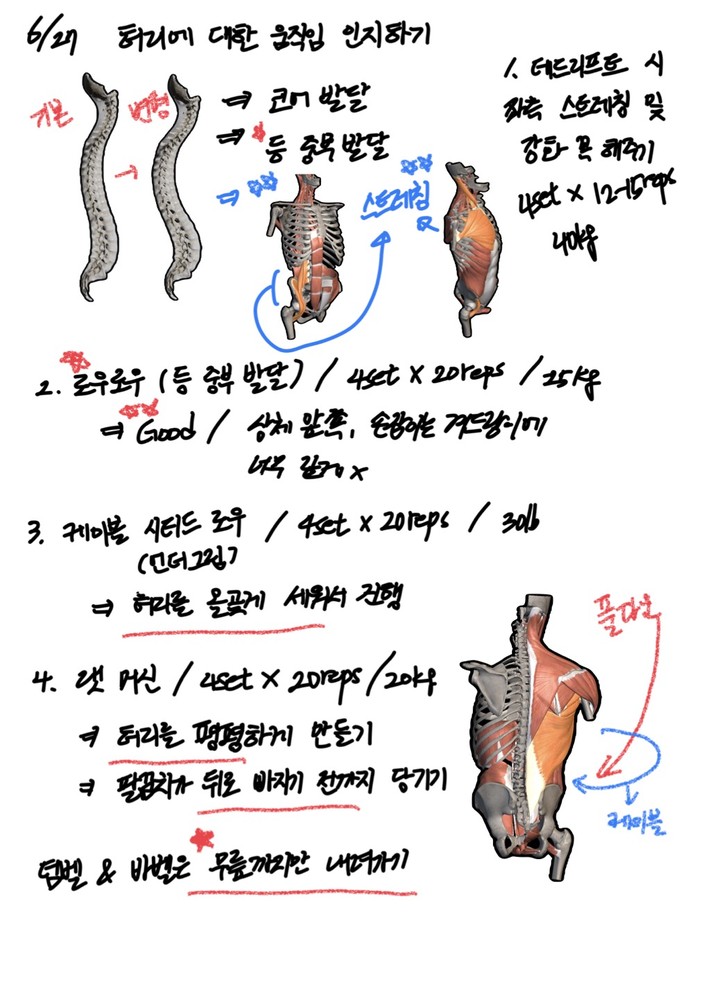 6/27 허리에 대한 움직임 인지하기
기본 → 변형
⇒ 코어 발달
⇒ 등 중부 발달
⇒ 스트레칭
1. 데드리프트 시
좌측 스트레칭 및
강화 꼭 해주기
4set × 12-15reps
40kg
2. 로우로우 (등 중부 발달) / 4set × 20reps / 25kg
⇒ Good / 상체 앞쪽, 손잡이는 겨드랑이에
너무 깊게 x
3. 케이블 시티드 로우 / 4set × 20reps / 30lb
(언더그립)
⇒ 허리를 올곧게 세워서 진행
4. 랫 머신 / 4set × 20reps / 20kg
⇒ 허리를 평평하게 만들기
⇒ 팔꿈치가 뒤로 빠지기 전까지 당기기
풀다운
케이블
덤벨 & 바벨은 무릎까지만 내려가기